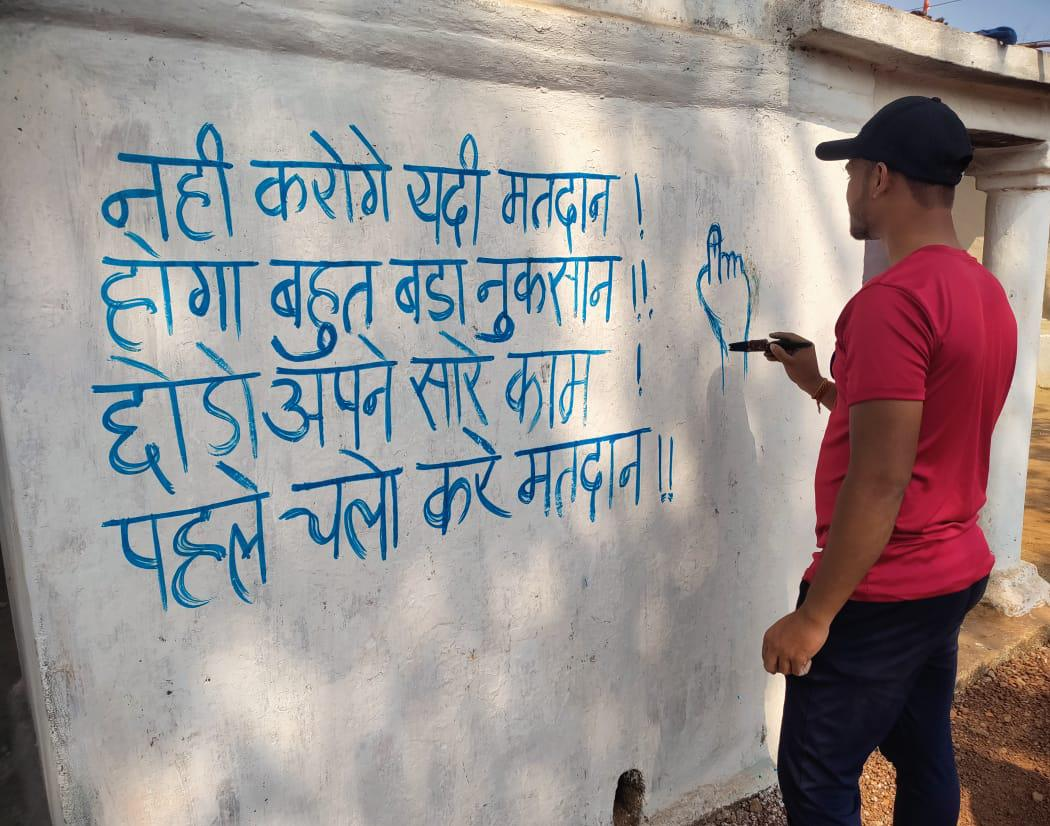 नही करोगे यदी मतदान !
होगा बहुत बडा नुकसान !!
छोडो अपने सारे काम !
पहले चलो करे मतदान !!